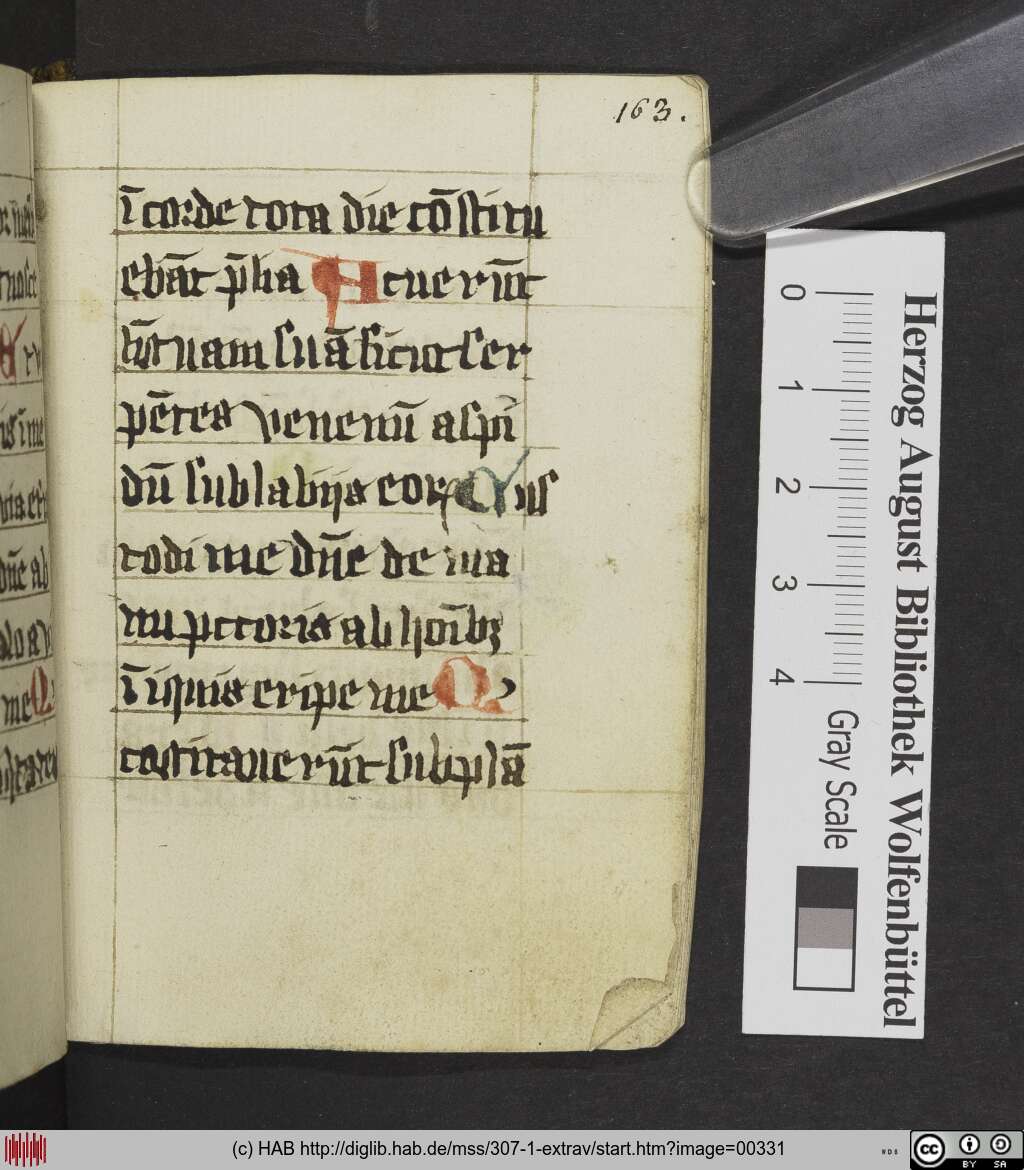 163.
ī corde tota die cōstitu
ebāt p̄lia Acuerūt
līguam suā sicut ser
pētes venenū aspi
dū sub labijs eoꝝ Cus
todi me dn̄e de ma
nu pctoris ab hoībꝫ
ī iquis eripe me Q
cogitauerūt subplā
0
1
2
3
4
Gray Scale
Herzog August Bibliothek Wolfenbüttel
(c) HAB http://diglib.hab.de/mss/307-1-extrav/start.htm?image=00331
cc BY SA